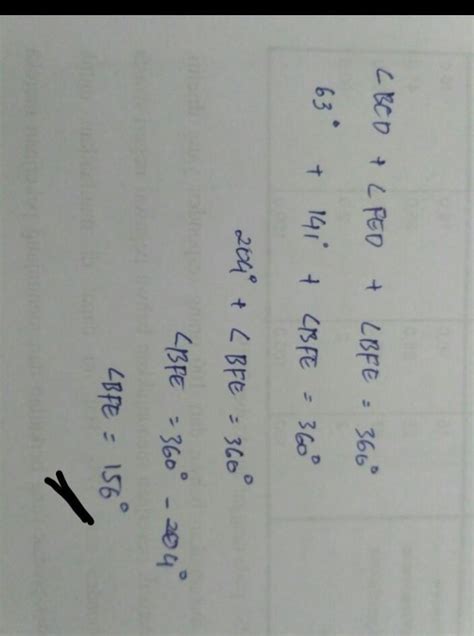 ∠BCD + ∠FED + ∠BFE = 360°
63° + 141° + ∠BFE = 360°
204° + ∠BFE = 360°
∠BFE = 360° - 204°
∠BFE = 156°